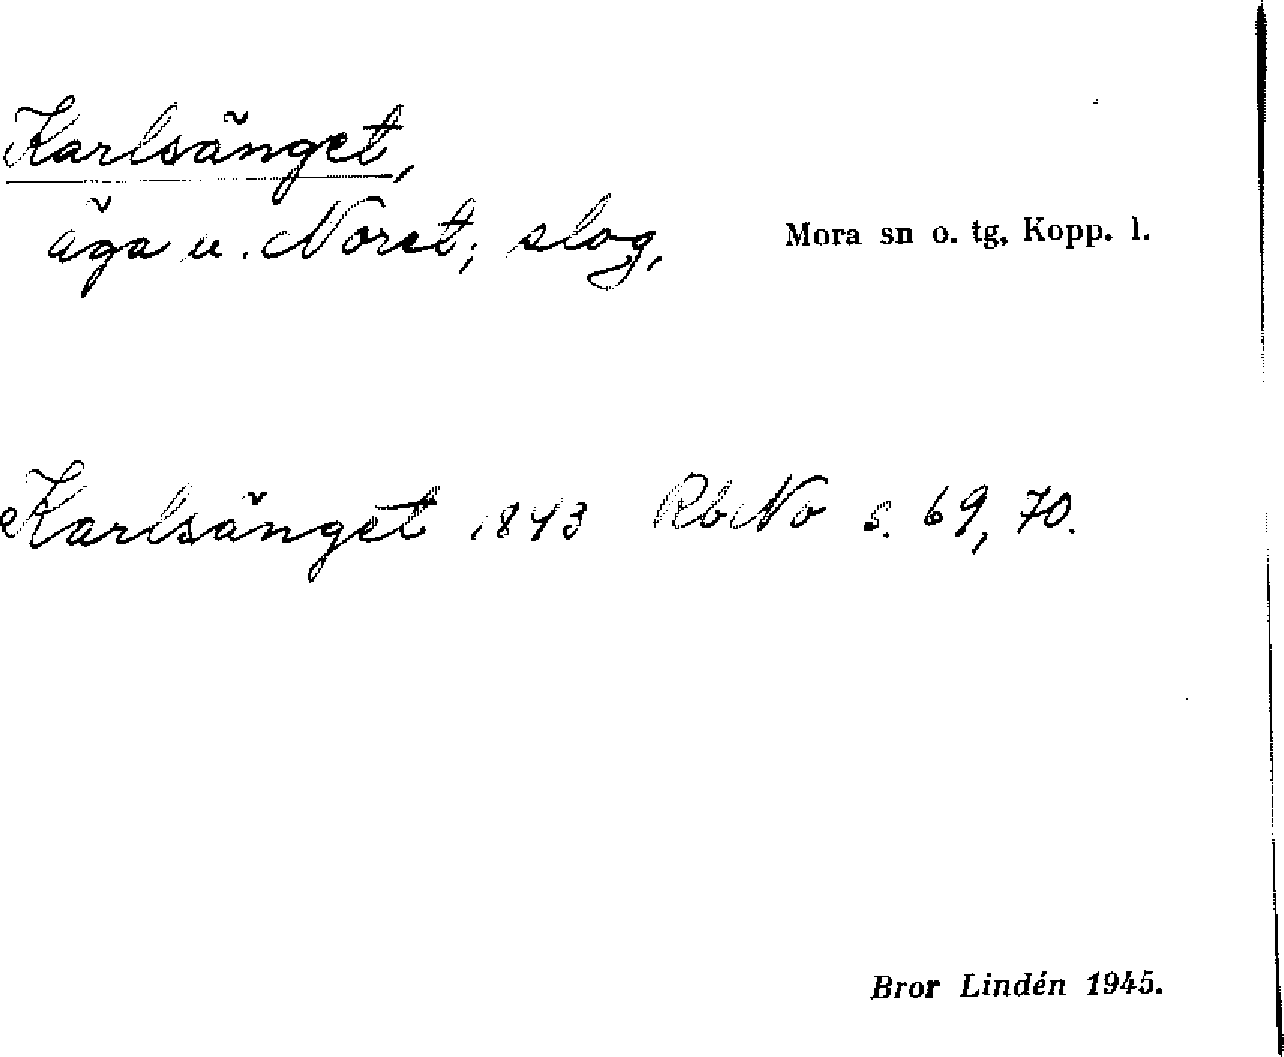 Karlsänget,
äga u. Noret; slog, Mora sn o. tg, Kopp. l.
Karlsänget 1843 RbNo s. 69, 70.
Bror Lindén 1945.